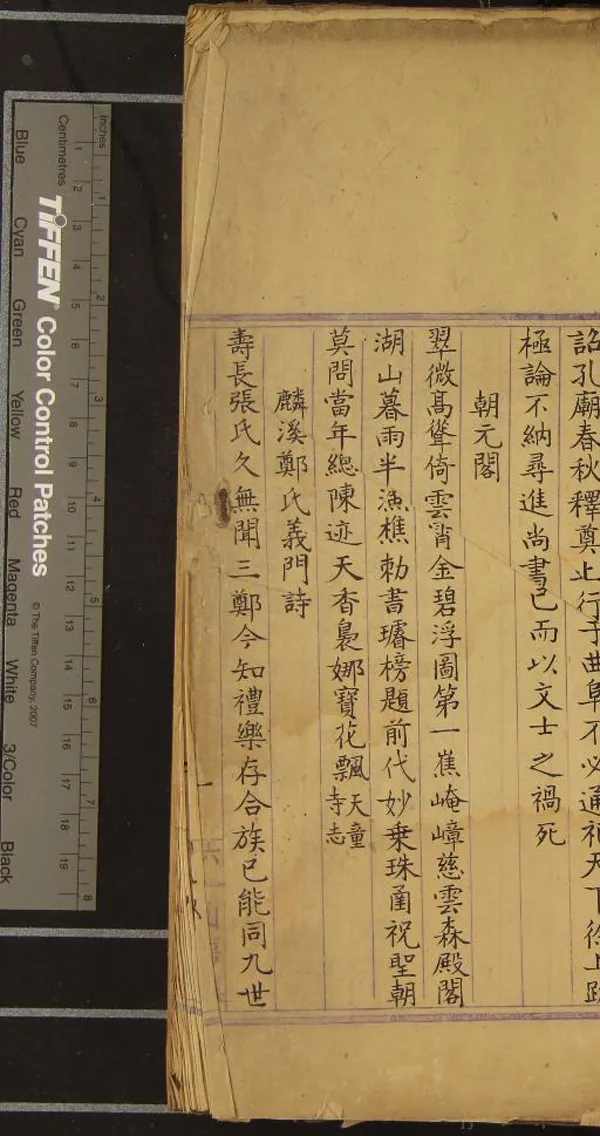 詔孔廟春秋釋奠止行于曲阜不必通祀天下徐上疏
極論不納尋進尚書已而以文士之禍死
朝元閣
翠微髙聳倚雲霄金碧浮圖第一蕉崦嶂慈雲森殿閣
湖山暮雨半漁樵勅書璿榜題前代妙乗珠函祝聖朝
莫問當年總陳迹天香裊娜寶花飄天童寺志
麟溪鄭氏義門詩
壽長張氏久無聞三鄭今知禮樂存合族已能同九世
Inches
Centimetres
1 2 3 4 5 6 7 8
1 2 3 4 5 6 7 8 9 10 11 12 13 14 15 16 17 18 19
TIFFEN® Color Control Patches
© The Tiffen Company, 2007
Blue Cyan Green Yellow Red Magenta White 3/Color Black